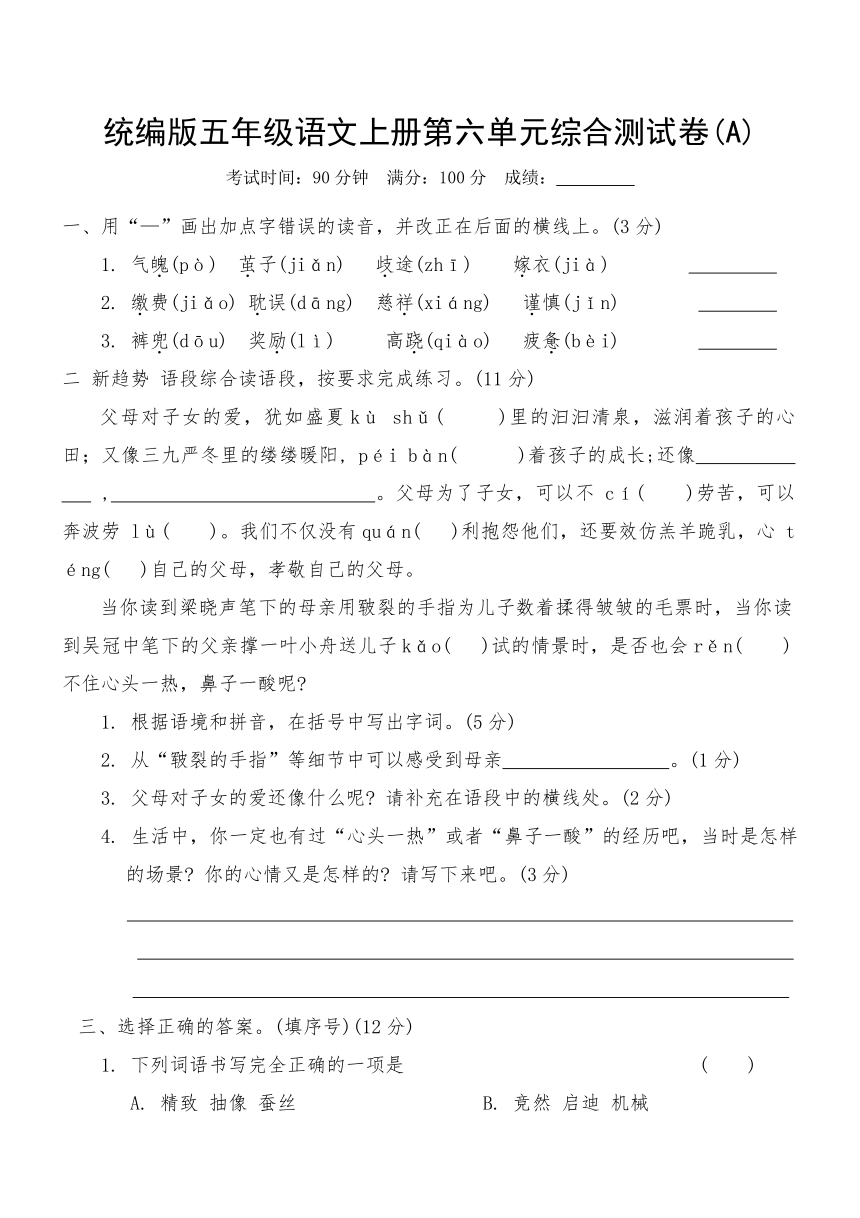 统编版五年级语文上册第六单元综合测试卷(A)
考试时间:90分钟 满分:100分 成绩:________
一、用“—”画出加点字错误的读音,并改正在后面的横线上。(3分)
1. 气魄(pò) 茧子(jiǎn) 歧途(zhī) 嫁衣(jià) ________
2. 缴费(jiǎo) 耽误(dāng) 慈祥(xiáng) 谨慎(jǐn) ________
3. 裤兜(dōu) 奖励(lì) 高跷(qiào) 疲惫(bèi) ________
二 新趋势 语段综合读语段,按要求完成练习。(11分)
父母对子女的爱,犹如盛夏kù shǔ( )里的汩汩清泉,滋润着孩子的心
田;又像三九严冬里的缕缕暖阳,péi bàn( )着孩子的成长;还像__________
___ ,__________________________。父母为了子女,可以不 cí( )劳苦,可以
奔波劳 lù( )。我们不仅没有quán( )利抱怨他们,还要效仿羔羊跪乳,心 t
éng( )自己的父母,孝敬自己的父母。
当你读到梁晓声笔下的母亲用皲裂的手指为儿子数着揉得皱皱的毛票时,当你读
到吴冠中笔下的父亲撑一叶小舟送儿子kǎo( )试的情景时,是否也会rěn( )
不住心头一热,鼻子一酸呢?
1. 根据语境和拼音,在括号中写出字词。(5分)
2. 从“皲裂的手指”等细节中可以感受到母亲________________。(1分)
3. 父母对子女的爱还像什么呢?请补充在语段中的横线处。(2分)
4. 生活中,你一定也有过“心头一热”或者“鼻子一酸”的经历吧,当时是怎样
的场景?你的心情又是怎样的?请写下来吧。(3分)
三、选择正确的答案。(填序号)(12分)
1. 下列词语书写完全正确的一项是 ( )
A. 精致 抽像 蚕丝 B. 竞然 启迪 机械